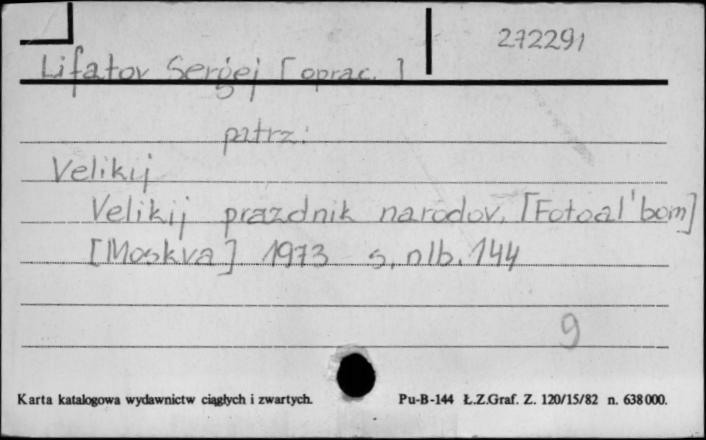 272291
Lifatov Sergej [oprac.]
patrz:
Velikij
Velikij prazdnik narodov. [Fotoal'bom]
[Moskva] 1973 s. nlb. 144
9
Karta katalogowa wydawnictw ciągłych i zwartych.
Pu-B-144 Ł.Z.Graf. Z. 120/15/82 n. 638000.